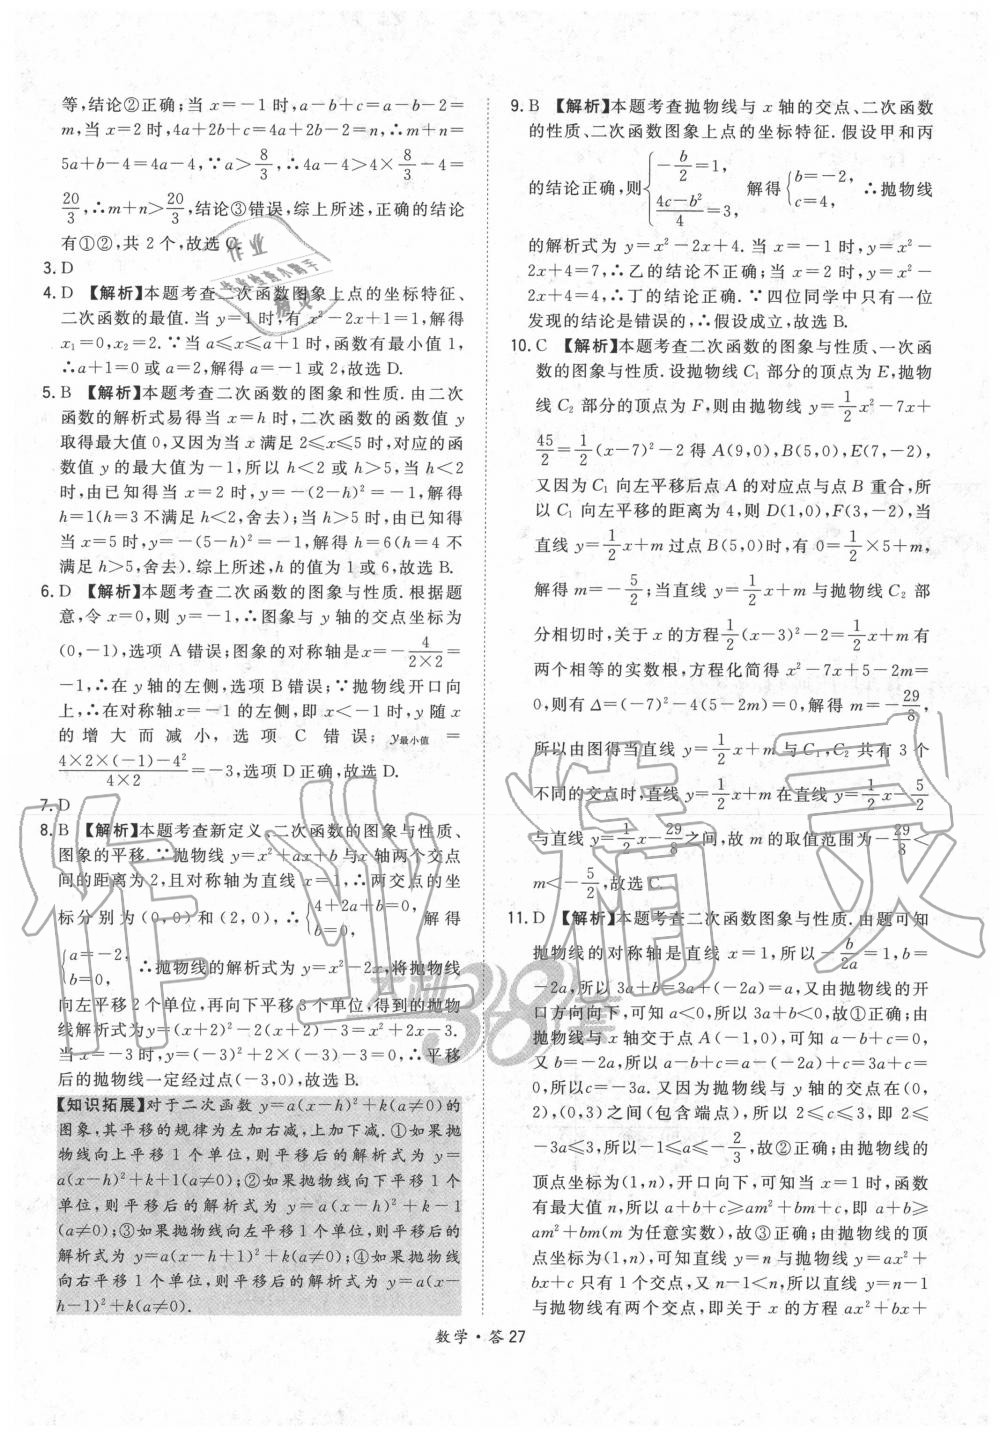 等,结论②正确;当 x=-1 时,a-b+c=a-b-2=
m,当 x=2 时,4a+2b+c=4a+2b-2=n,∴m+n=
5a+b-4=4a-4,∵a>8/3,∴4a-4>4×8/3-4=
20/3,∴m+n>20/3,结论③错误,综上所述,正确的结论
有①②,共 2 个,故选 C.
3. D
4. D 【解析】本题考查二次函数图象上点的坐标特征、
二次函数的最值.当 y=1 时,有 x²-2x+1=1,解得
x₁=0,x₂=2.∵当 a≤x≤a+1 时,函数有最小值 1,
∴a+1=0 或 a=2,解得 a=-1 或 2,故选 D.
5. B 【解析】本题考查二次函数的图象和性质.由二次
函数的解析式易得当 x=h 时,二次函数的函数值 y
取得最大值 0,又因为当 x 满足 2≤x≤5 时,对应的函
数值 y 的最大值为-1,所以 h<2 或 h>5,当 h<2
时,由已知得当 x=2 时,y=-(2-h)²=-1,解得
h=1(h=3 不满足 h<2,舍去);当 h>5 时,由已知得
当 x=5 时,y=-(5-h)²=-1,解得 h=6(h=4 不
满足 h>5,舍去).综上所述,h 的值为 1 或 6,故选 B.
6. D 【解析】本题考查二次函数的图象与性质.根据题
意,令 x=0,则 y=-1,∴图象与 y 轴的交点坐标为
(0,-1),选项 A 错误;图象的对称轴是 x=-4/(2×2)=
-1,∴在 y 轴的左侧,选项 B 错误;∵抛物线开口向
上,∴在对称轴 x=-1 的左侧,即 x<-1 时,y 随 x
的增大而减小,选项 C 错误;y最小值=
(4×2×(-1)-4²)/(4×2)=-3,选项 D 正确,故选 D.
7. D
8. B 【解析】本题考查新定义、二次函数的图象与性质、
图象的平移.∵抛物线 y=x²+ax+b 与 x 轴两个交点
间的距离为 2,且对称轴为直线 x=1,∴两交点的坐
标分别为(0,0)和(2,0),∴{4+2a+b=0, b=0, 解得
{a=-2, b=0, ∴抛物线的解析式为 y=x²-2x,将抛物线
向左平移 2 个单位,再向下平移 3 个单位,得到的抛物
线解析式为 y=(x+2)²-2(x+2)-3=x²+2x-3.
当 x=-3 时,y=(-3)²+2×(-3)-3=0,∴平移
后的抛物线一定经过点(-3,0),故选 B.
【知识拓展】对于二次函数 y=a(x-h)²+k(a≠0)的
图象,其平移的规律为左加右减,上加下减.①如果抛
物线向上平移 1 个单位,则平移后的解析式为 y=
a(x-h)²+k+1(a≠0);②如果抛物线向下平移 1 个
单位,则平移后的解析式为 y=a(x-h)²+k-1
(a≠0);③如果抛物线向左平移 1 个单位,则平移后的
解析式为 y=a(x-h+1)²+k(a≠0);④如果抛物线
向右平移 1 个单位,则平移后的解析式为 y=a(x-
h-1)²+k(a≠0).
9. B 【解析】本题考查抛物线与 x 轴的交点、二次函数
的性质、二次函数图象上点的坐标特征.假设甲和丙
的结论正确,则{-b/2=1, (4c-b²)/4=3, 解得{b=-2, c=4, ∴抛物线
的解析式为 y=x²-2x+4.当 x=-1 时,y=x²-
2x+4=7,∴乙的结论不正确;当 x=2 时,y=x²-
2x+4=4,∴丁的结论正确.∵四位同学中只有一位
发现的结论是错误的,∴假设成立,故选 B.
10. C 【解析】本题考查二次函数的图象与性质、一次函
数的图象与性质.设抛物线 C₁ 部分的顶点为 E,抛物
线 C₂ 部分的顶点为 F,则由抛物线 y=1/2x²-7x+
45/2=1/2(x-7)²-2 得 A(9,0),B(5,0),E(7,-2),
又因为 C₁ 向左平移后点 A 的对应点与点 B 重合,所
以 C₁ 向左平移的距离为 4,则 D(1,0),F(3,-2),当
直线 y=1/2x+m 过点 B(5,0)时,有 0=1/2×5+m,
解得 m=-5/2;当直线 y=1/2x+m 与抛物线 C₂ 部
分相切时,关于 x 的方程1/2(x-3)²-2=1/2x+m 有
两个相等的实数根,方程化简得 x²-7x+5-2m=
0,则有 Δ=(-7)²-4(5-2m)=0,解得 m=-29/8,
所以由图得当直线 y=1/2x+m 与 C₁,C₂ 共有 3 个
不同的交点时,直线 y=1/2x+m 在直线 y=1/2x-5/2
与直线 y=1/2x-29/8之间,故 m 的取值范围为-29/8<
m<-5/2,故选 C.
11. D 【解析】本题考查二次函数图象与性质.由题可知
抛物线的对称轴是直线 x=1,所以-b/2a=1,b=
-2a,所以 3a+b=3a+(-2a)=a,又由抛物线的开
口方向向下,可知 a<0,所以 3a+b<0,故①正确;由
抛物线与 x 轴交于点 A(-1,0),可知 a-b+c=0,
又 b=-2a,所以 a-b+c=a-(-2a)+c=3a+c=
0,所以 c=-3a.又因为抛物线与 y 轴的交点在(0,
2),(0,3)之间(包含端点),所以 2≤c≤3,即 2≤
-3a≤3,所以-1≤a≤-2/3,故②正确;由抛物线的
顶点坐标为(1,n),开口向下,可知当 x=1 时,函数
有最大值 n,所以 a+b+c≥am²+bm+c,即 a+b≥
am²+bm(m 为任意实数),故③正确;由抛物线的顶
点坐标为(1,n),可知直线 y=n 与抛物线 y=ax²+
bx+c 只有 1 个交点,又 n-1<n,所以直线 y=n-1
与抛物线有两个交点,即关于 x 的方程 ax²+bx+
数学·答 27
作业精灵